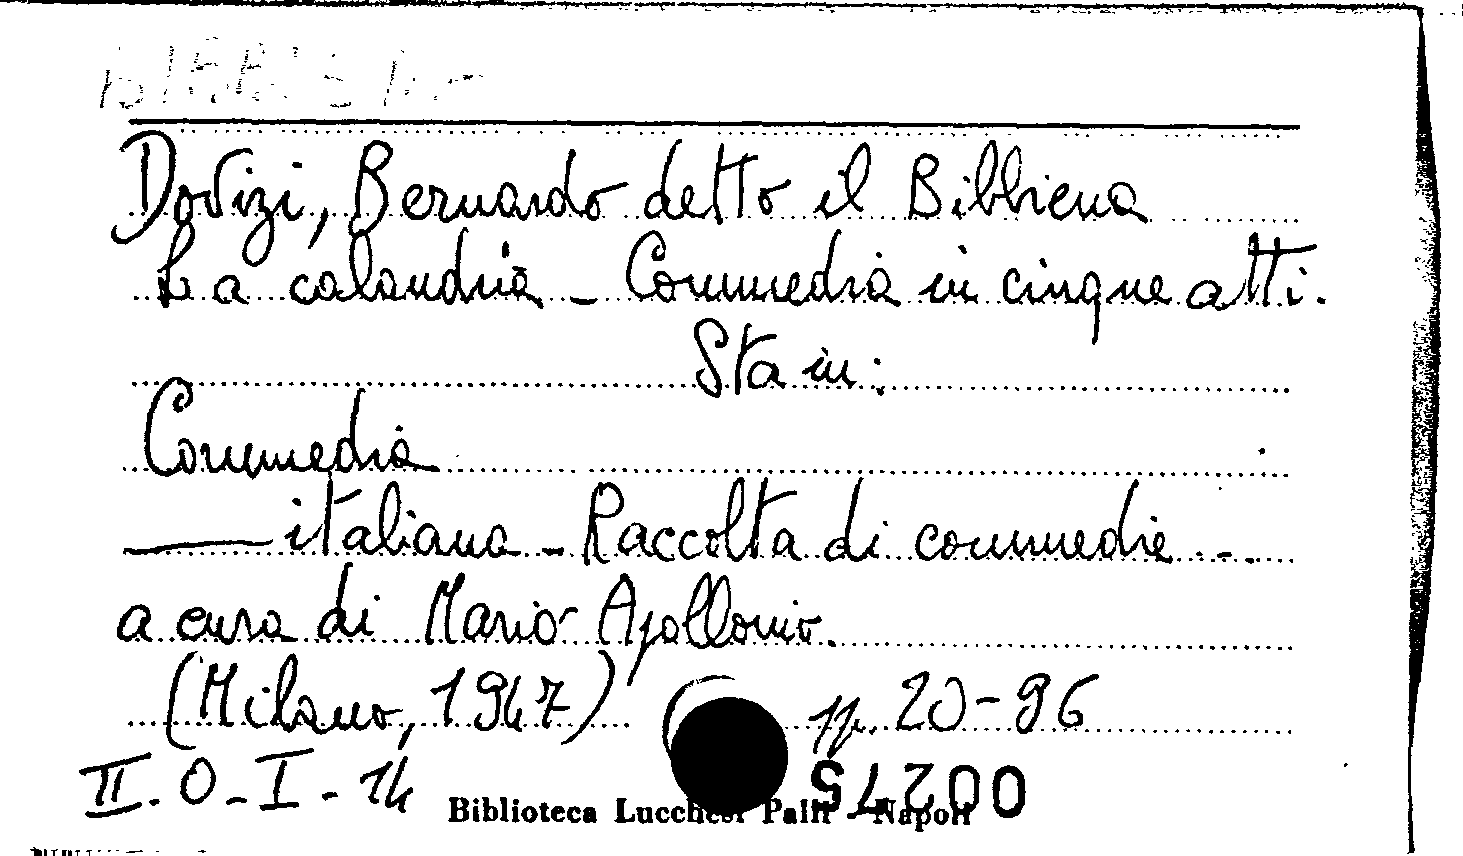 Dovizi, Bernardo detto il Bibbiena
La calandria - Commedia in cinque atti.
Sta in:
Commedia
italiana - Raccolta di commedie ...
a cura di Mario Apollonio.
(Milano, 1947) pp. 20-96
II. O - I - 14
Biblioteca Lucchesi Palli - Napoli